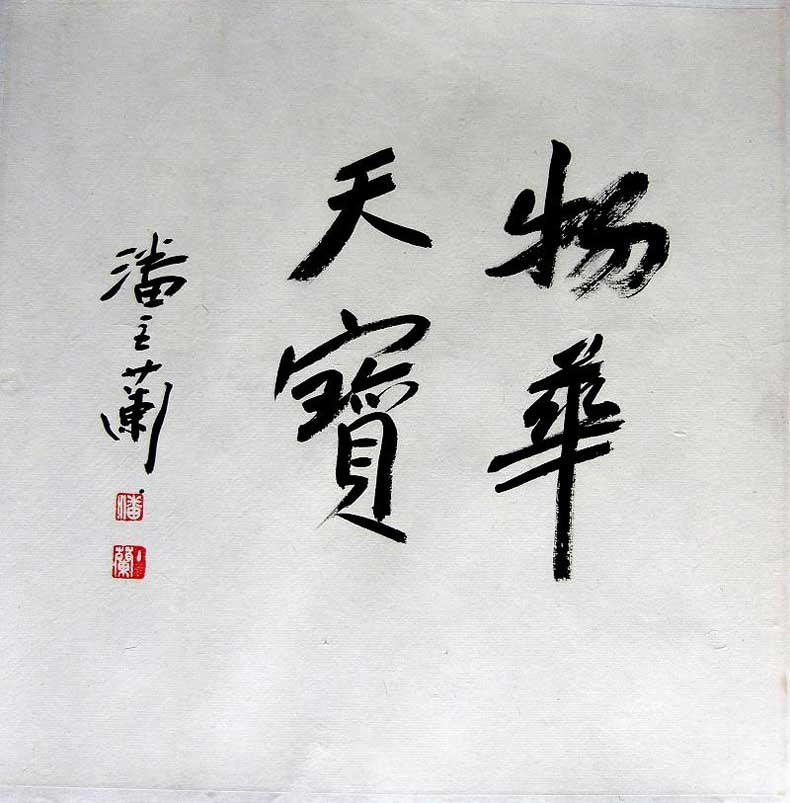 物華
天寶
潘主蘭
潘
主蘭